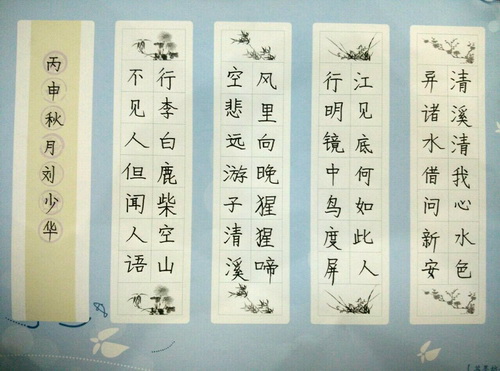 清溪清我心水色
异诸水借问新安
江见底何如此人
行明镜中鸟度屏
风里向晚猩猩啼
空悲远游子清溪
行李白鹿柴空山
不见人但闻人语
丙申秋月刘少华